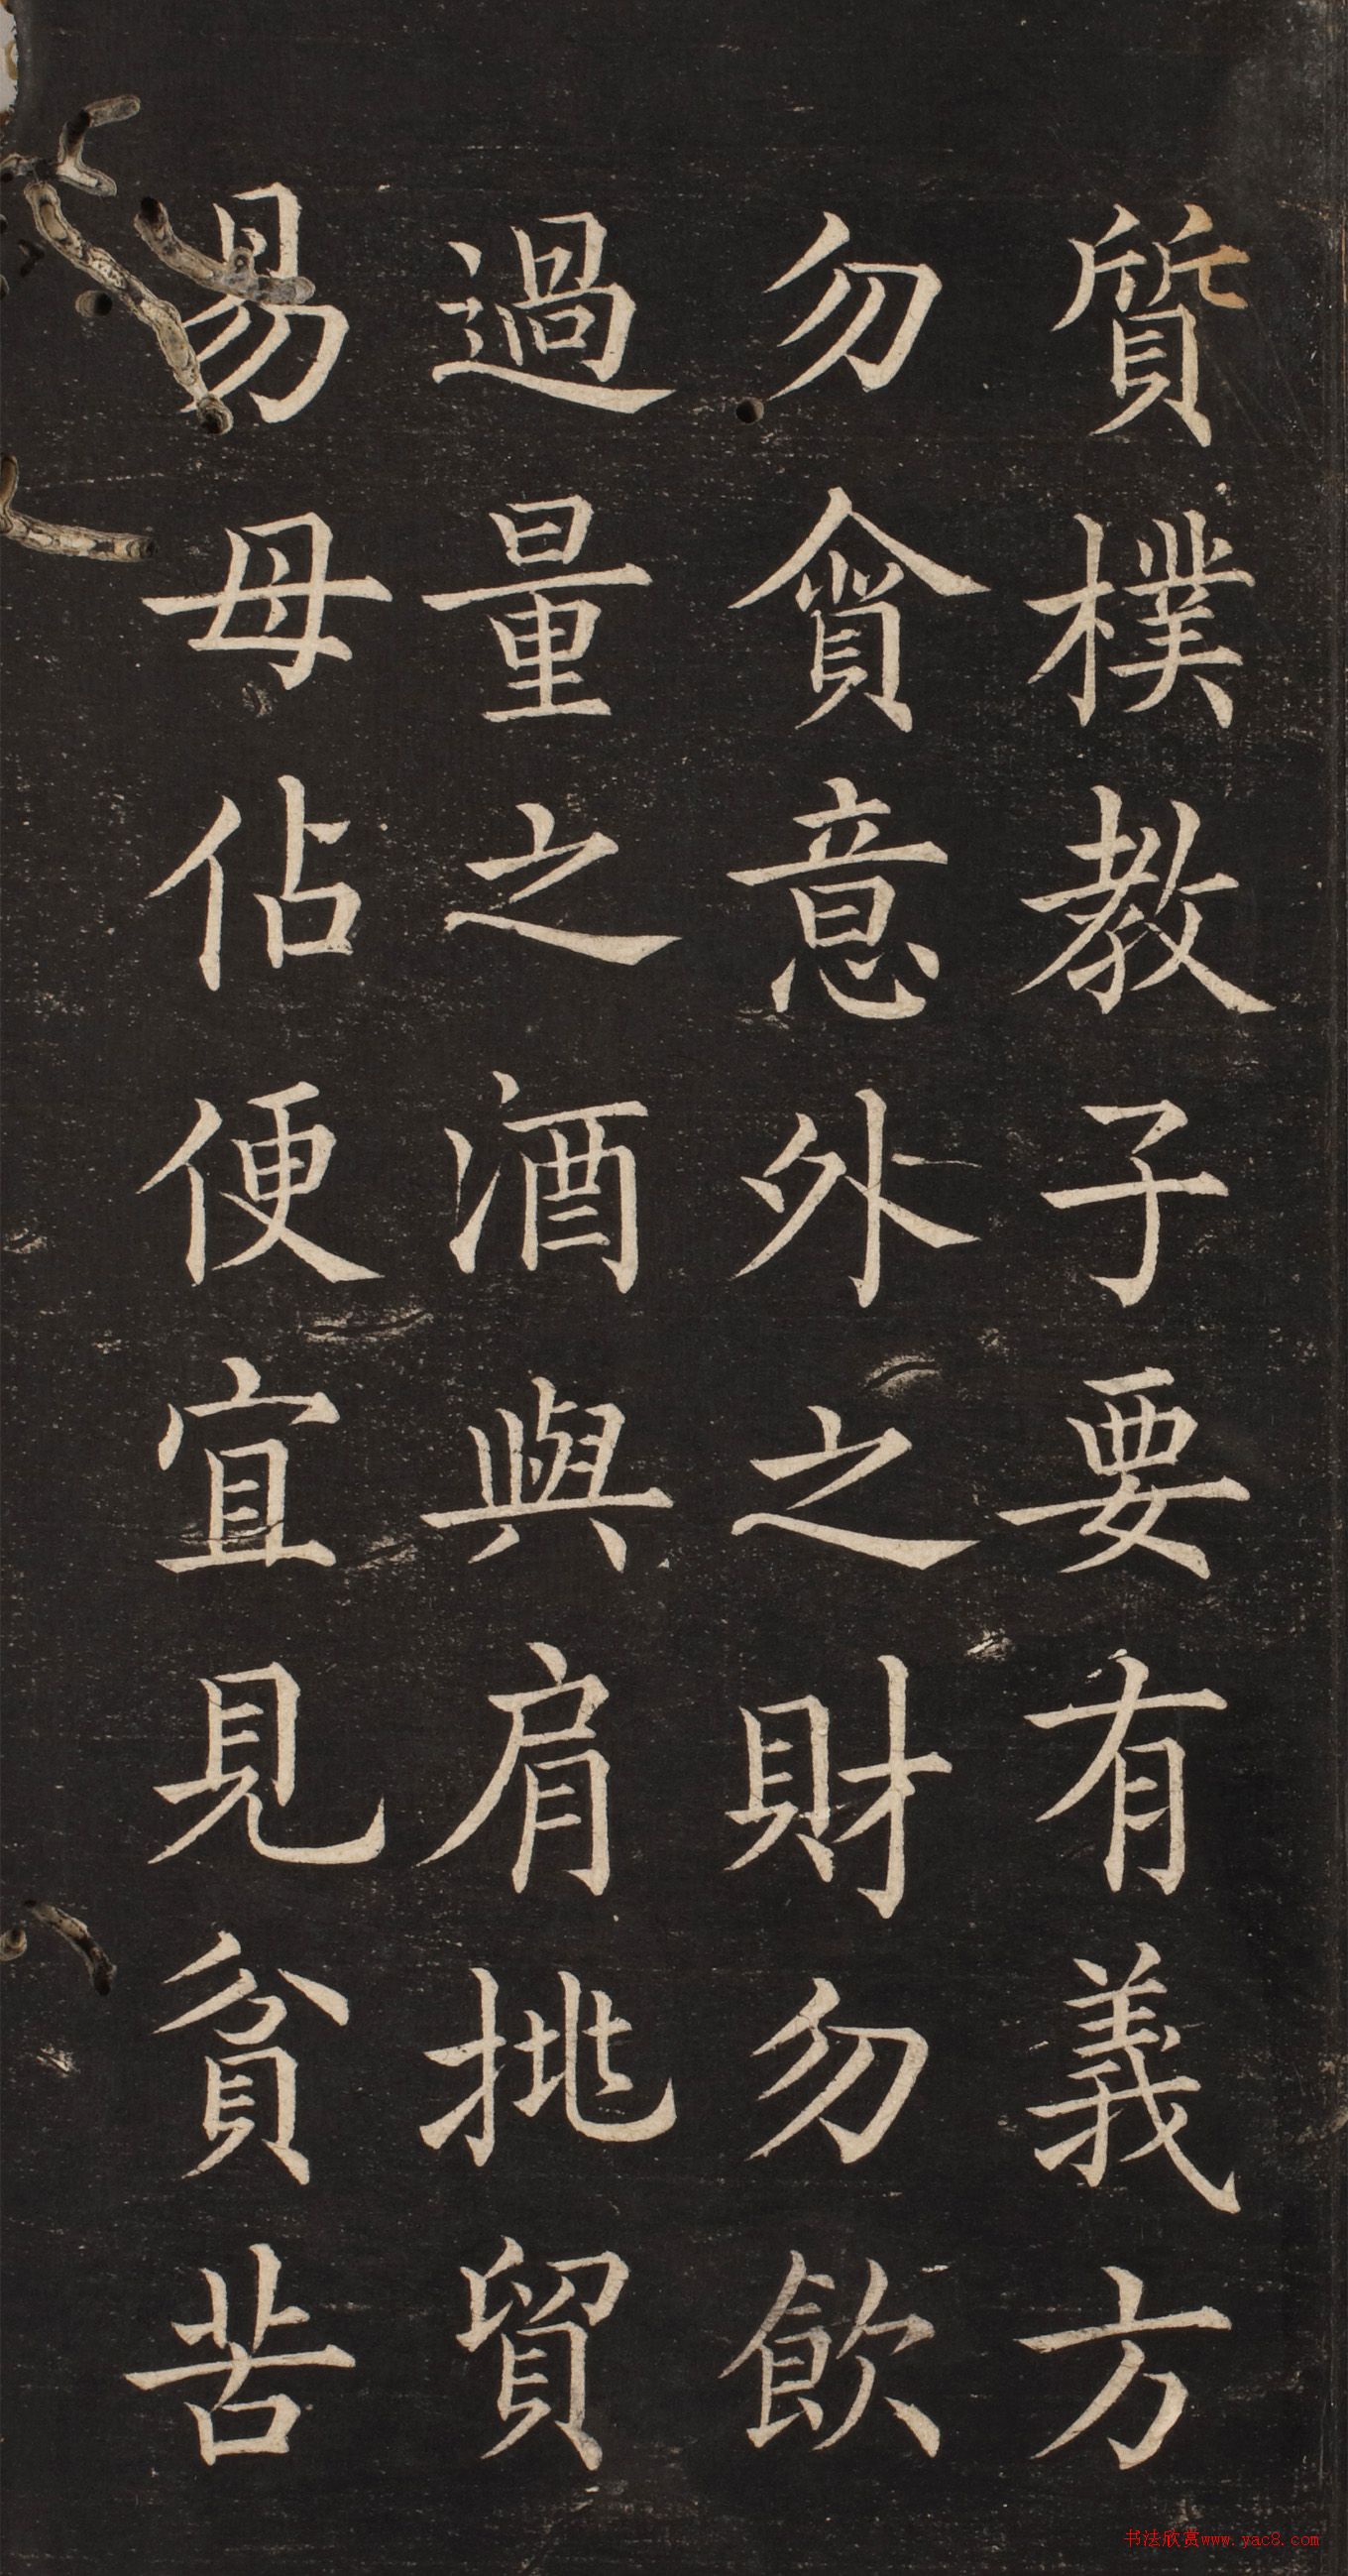 質樸教子要有義方
勿貪意外之財勿飲
過量之酒與肩挑貿
易毋佔便宜見貧苦
书法欣赏www.yac8.com